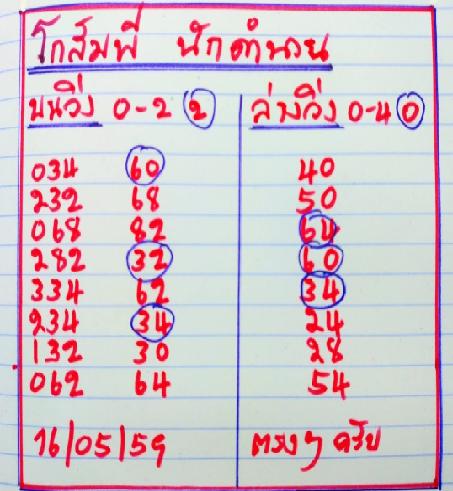 โกสัมพี นักทำนาย
บนวิ่ง 0-2 2
ล่างวิ่ง 0-4 0
034 60 40
232 68 50
068 82 64
282 32 60
334 62 34
234 34 24
132 30 28
062 64 54
16/05/59 ตรงๆ ครับ